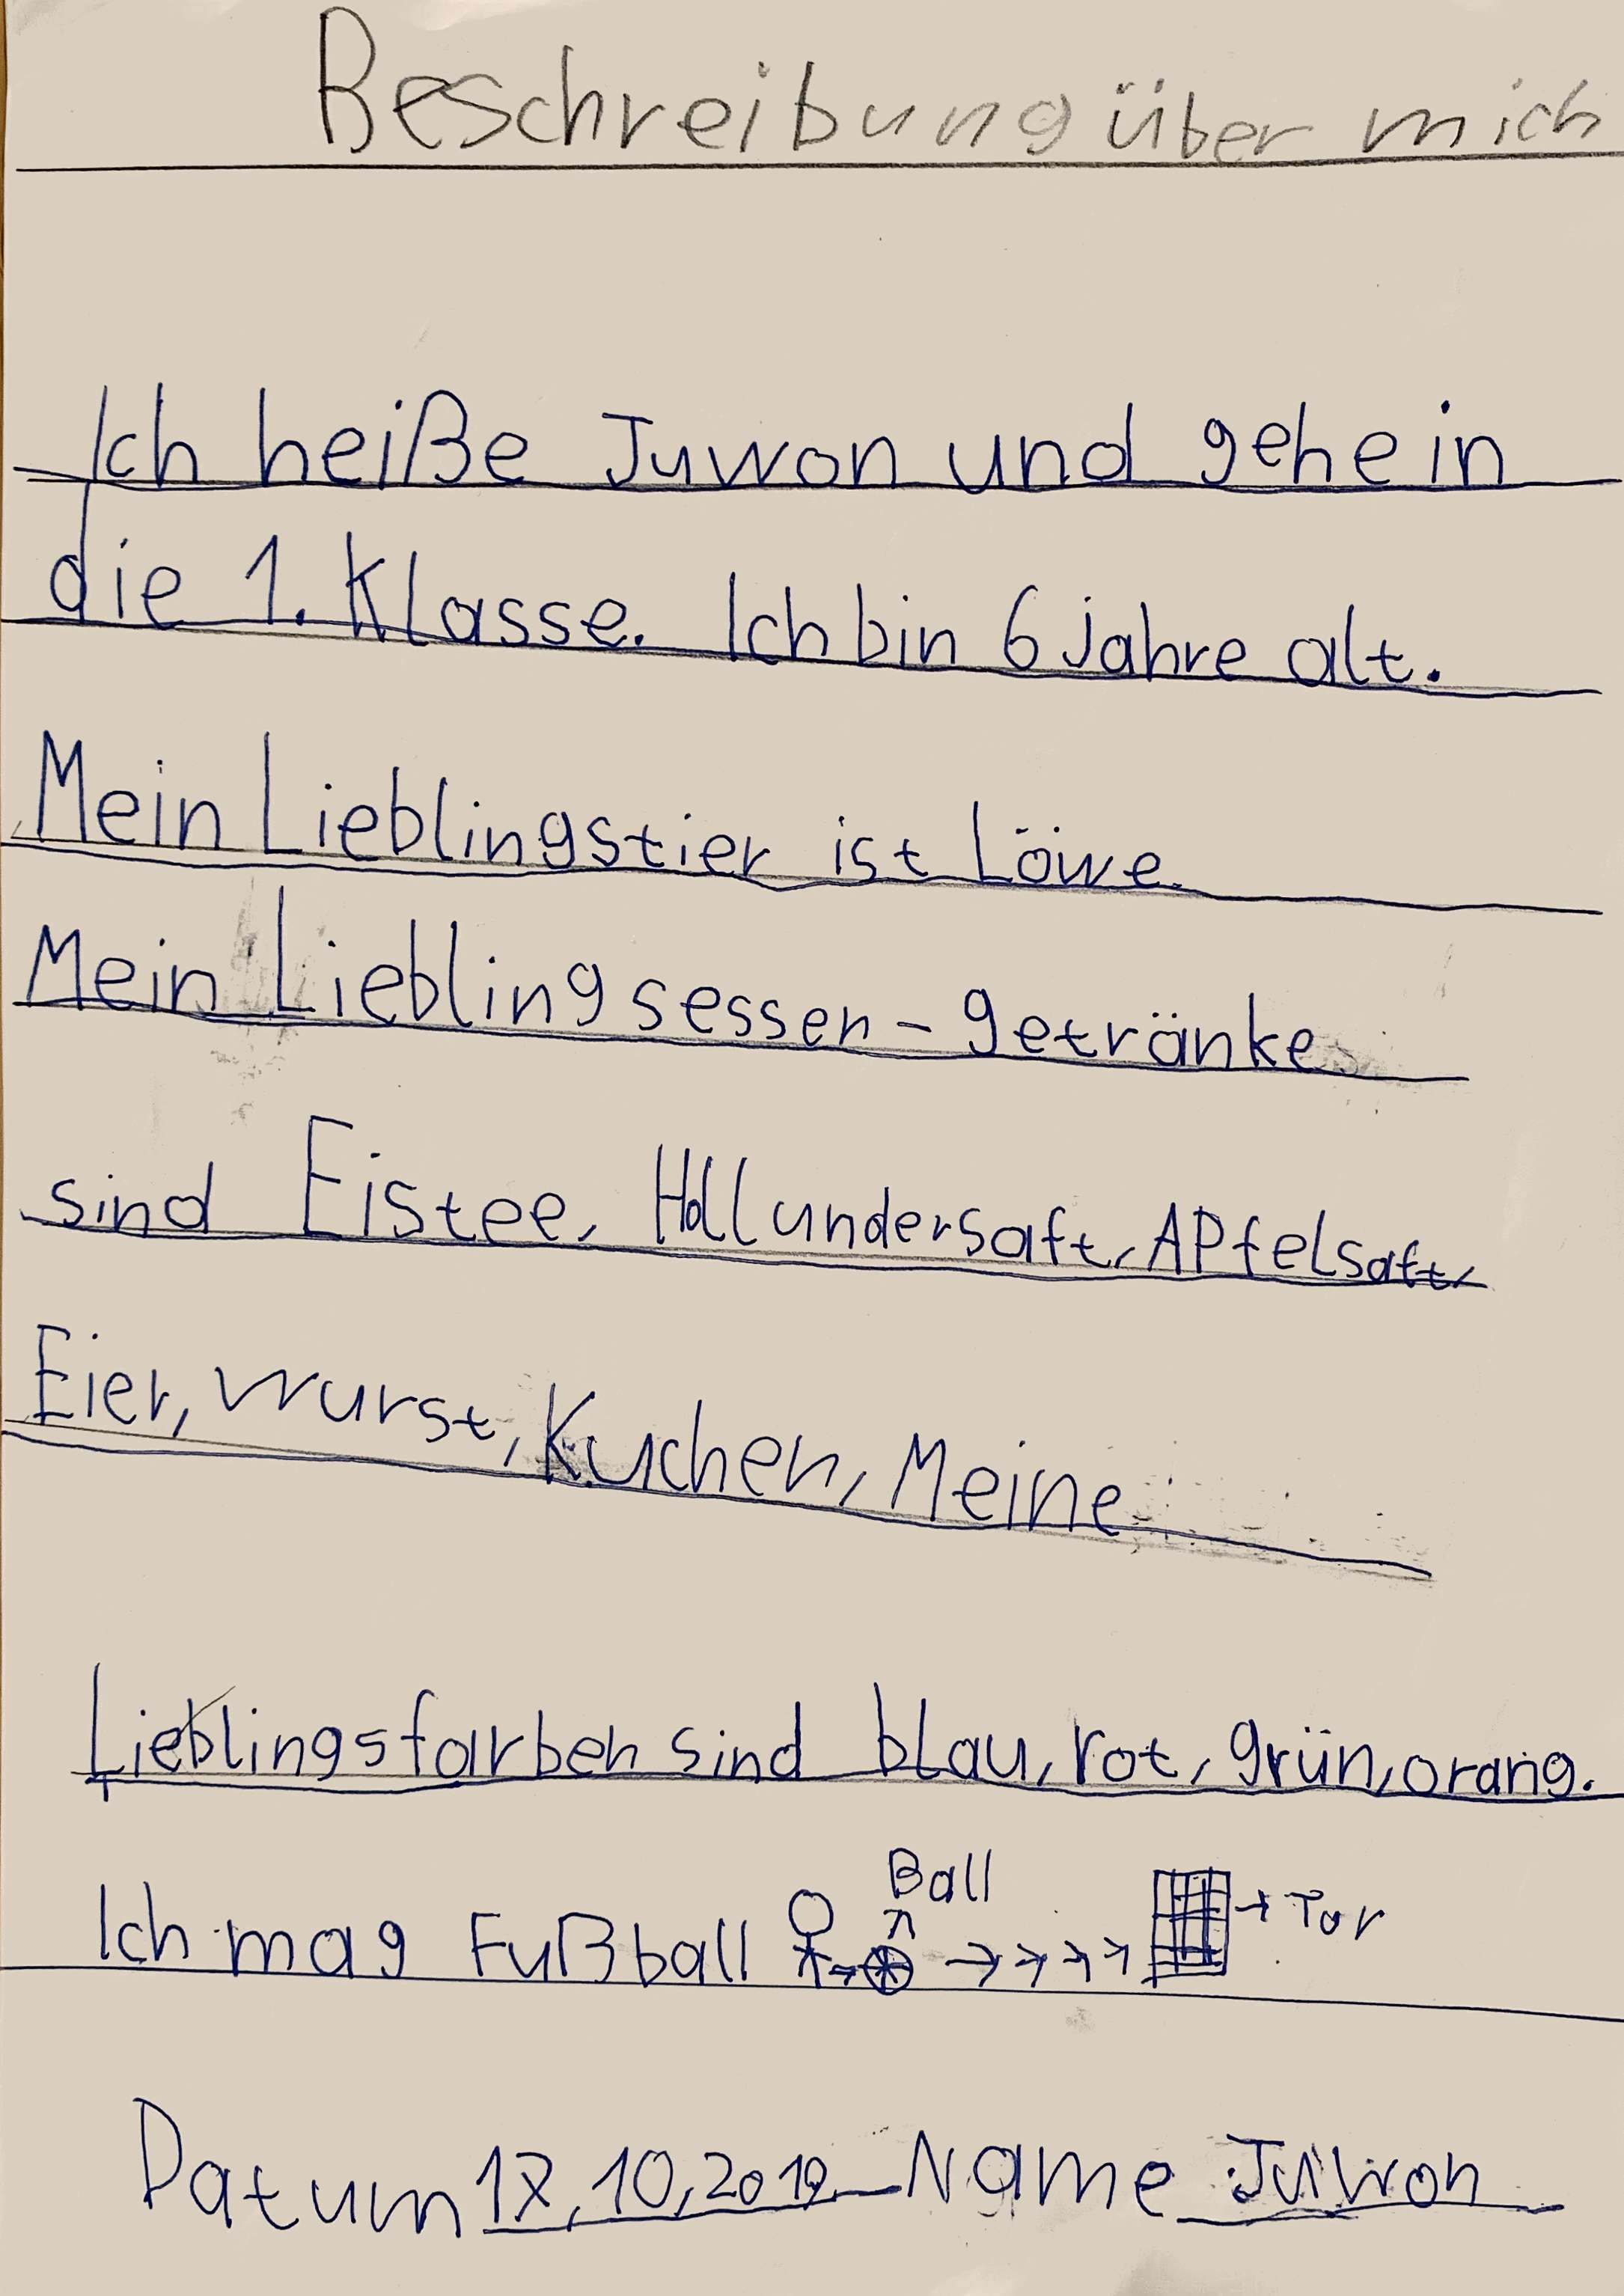 Beschreibung über mich
Ich heiße Juwon und gehe in
die 1. Klasse. Ich bin 6 Jahre alt.
Mein Lieblingstier ist Löwe.
Mein Lieblingsessen - getränke
sind Eistee, Hollundersaft, APfelsaft,
Eier, Wurst, Kuchen, Meine
Lieblingsfarben sind blau, rot, grün, orang.
Ball
Ich mag Fußball → Tor
Datum Name Juwon